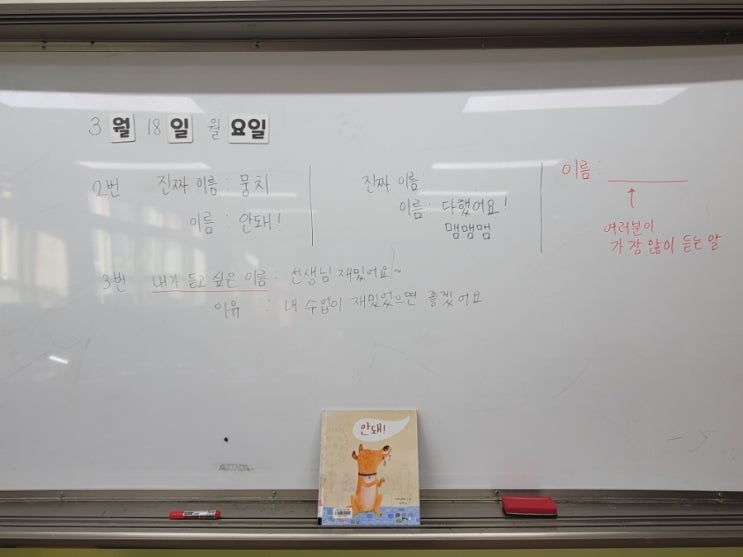 3 월 18 일 월 요일
2번 진짜 이름 : 뭉치
이름 : 안돼!
진짜 이름 :
이름 : 다했어요!
맴맴맴
이름 :
여러분이
가장 많이 듣는 말
3번 내가 듣고 싶은 이름 : 선생님 재밌어요~
이유 : 내 수업이 재밌었으면 좋겠어요
안돼!